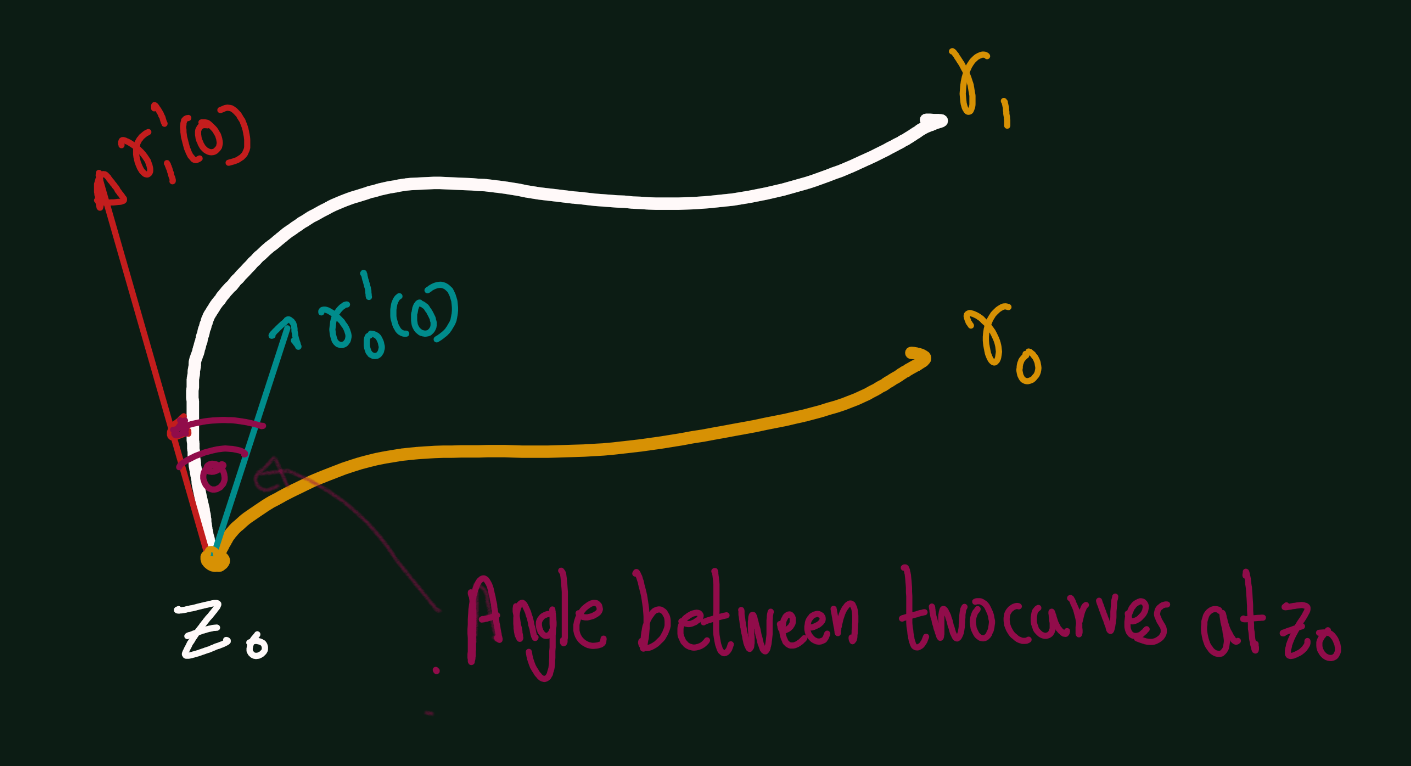 γ₁
γ₁'(0)
γ₀'(0)
γ₀
θ
z₀
Angle between twocurves at z₀